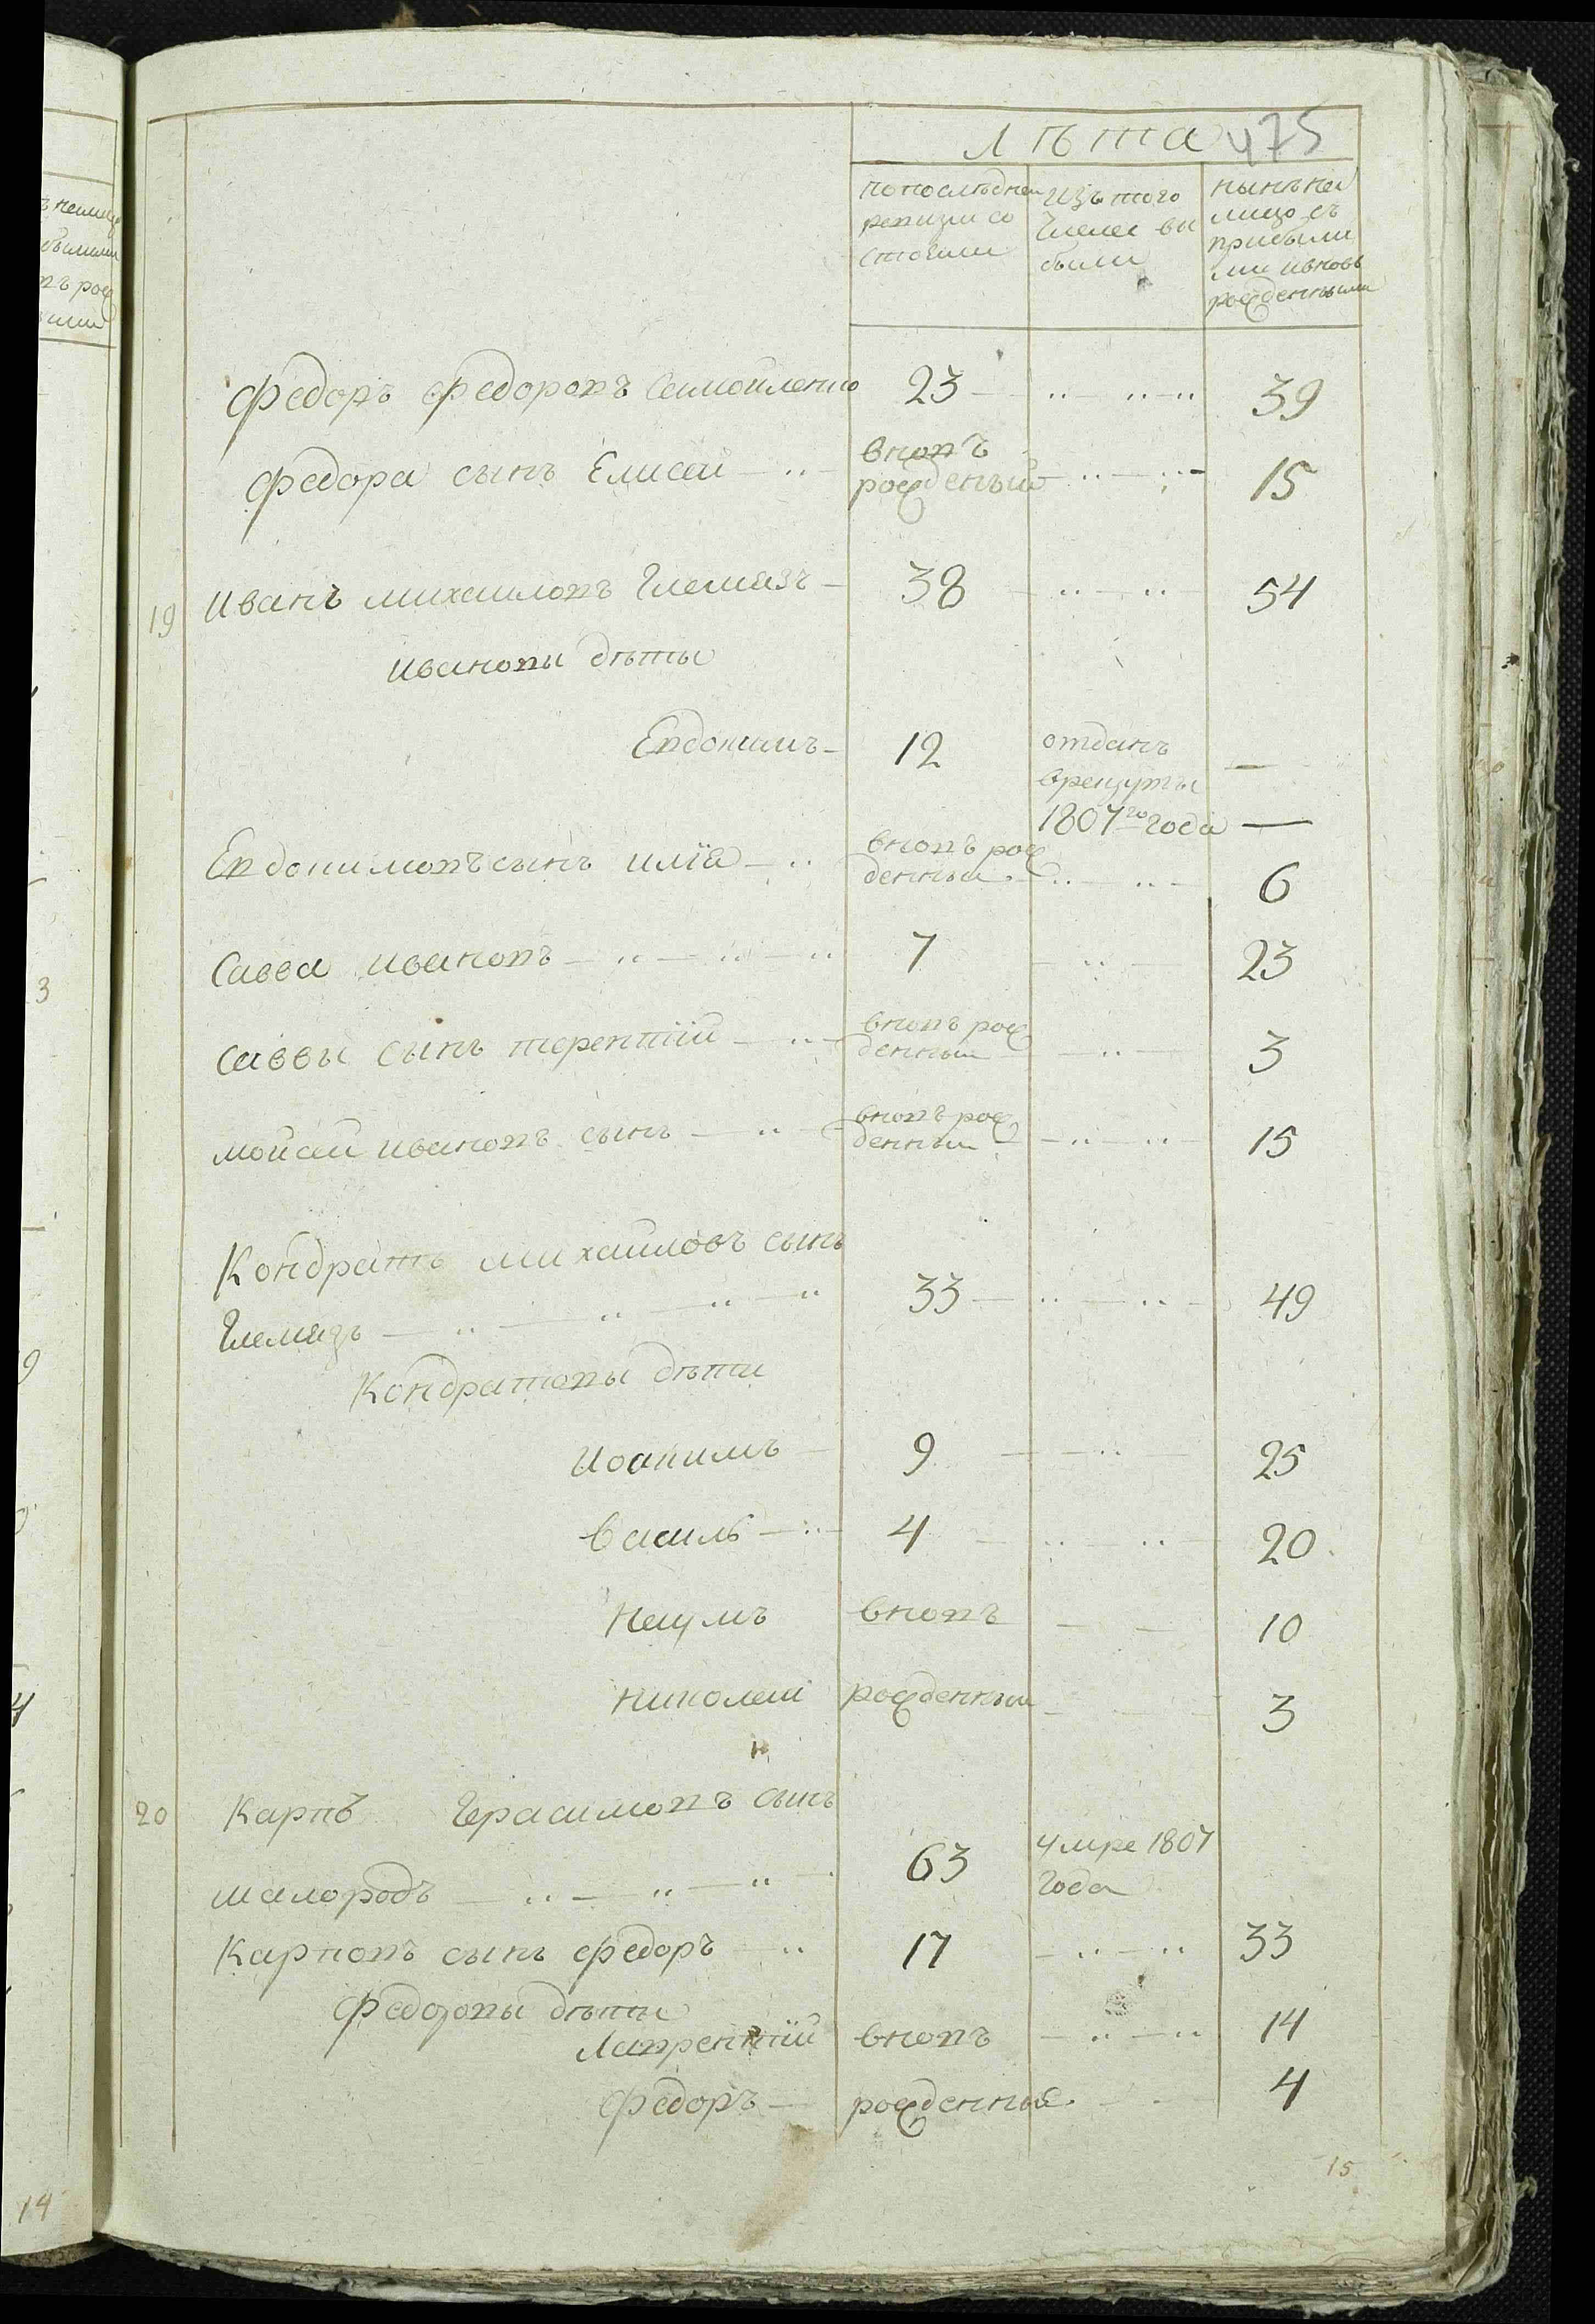 лѣта 475
по последней
ревизии со
стояли
изъ того
числа вы
были
нынѣ на
лицо съ
прибылы
ми и вновь
рожденными
Федоръ Федоровъ Самойленко 23 39
Федора сынъ Елисей вновъ
рожденый 15
19 Иванъ михаиловъ Глемазъ 38 54
Ивановы дѣты
Евдокимъ 12 отданъ
врекруты
1807го года
Евдокимовъ сынъ илїа вновъ рож
денный 6
Савва ивановъ 7 23
Саввы сынъ терентїй вновъ рож
денный 3
мойсей ивановъ сынъ вновъ рож
денный 15
Кондратъ михаиловъ сынъ
Глемазъ 33 49
Кондратовы дѣти
Иоакимъ 9 25
василь 4 20
Наумъ вновъ 10
николай рожденный 3
20 Карпъ Герасимовъ сынъ
шалородъ 63 умре 1807
года
Карповъ сынъ Федоръ 17 33
Федоровы дѣти
Лаврентїй вновъ 14
Федоръ рожденныя 4
15
14